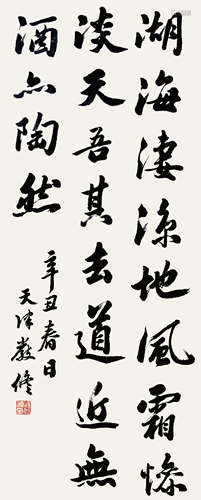 湖海淒涼地風霜慘
淡天吾其去道近無
酒亦陶然
辛丑春日
天津嚴修